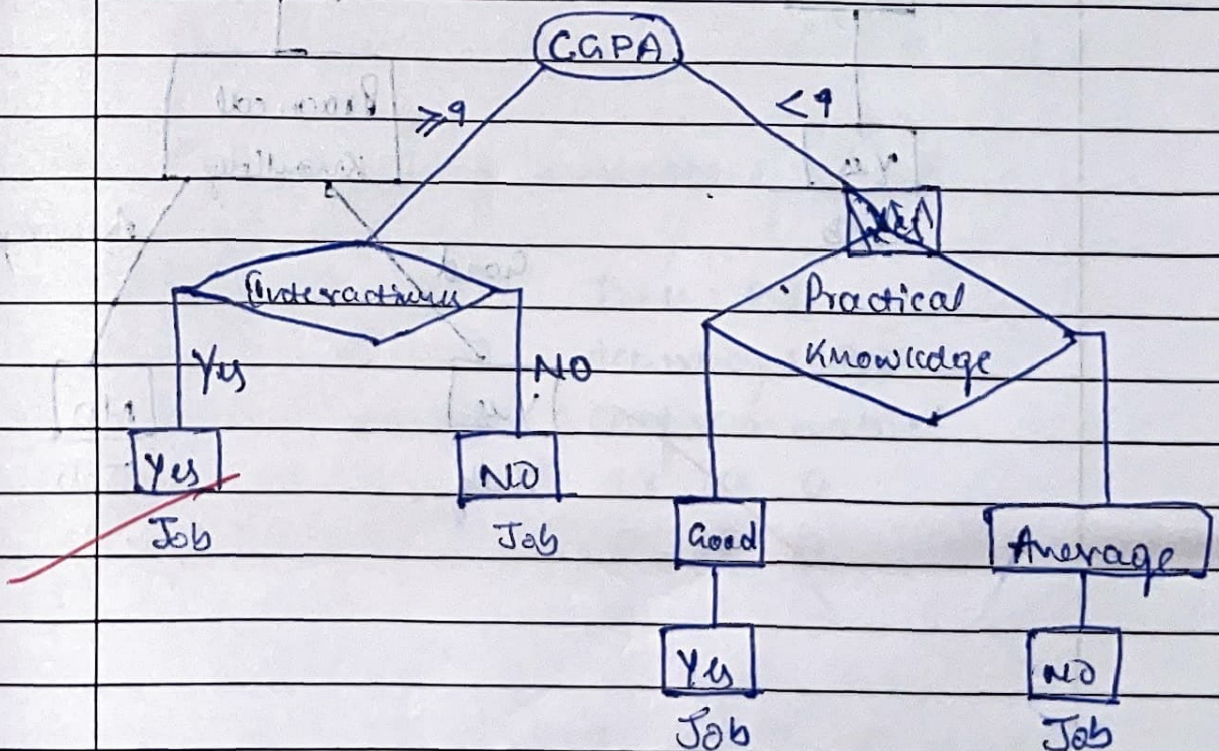 CGPA
≥9
<9
Interactiveness
Practical
Knowledge
Yes
NO
Yes
NO
Job
Job
Good
Average
Yes
NO
Job
Job